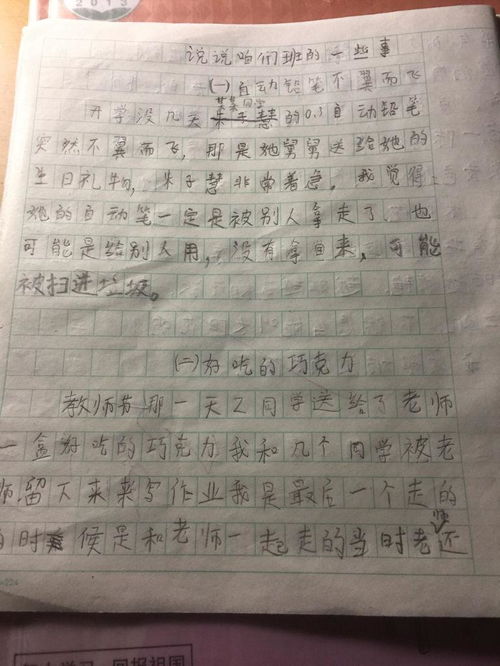 2013
说说咱们班的一些事
(一)自动铅笔不翼而飞
某某同学
开学没几天朱子慧的0.5自动铅笔
突然不翼而飞,那是她舅舅送给她的
生日礼物,朱子慧非常着急。我觉得
她的自动笔一定是被别人拿走了,也
可能是给别人用,没有拿回来,可能
被扫进垃圾。
(二)好吃的巧克力
教师节那一天Z同学送给了老师
一盒好吃的巧克力我和几个同学被老
师留下来来写作业我是最后一个走的
的时候是和老师一起走的当时老师还
回报祖国